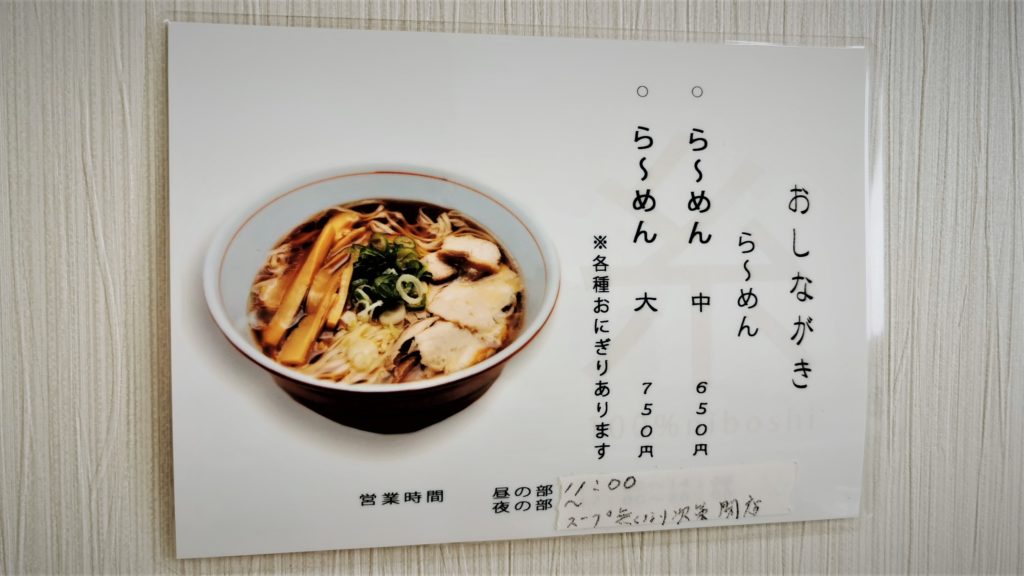 おしながき
ら〜めん
○ ら〜めん 中 650円
○ ら〜めん 大 750円
※各種おにぎりあります
営業時間 昼の部 11:00
夜の部 〜
スープ無くなり次第閉店